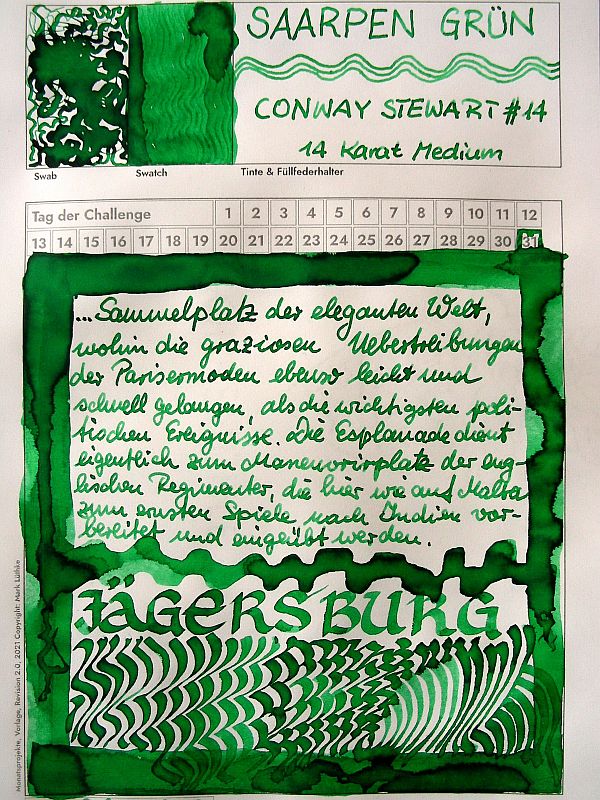 SAARPEN GRÜN
CONWAY STEWART #14
14 Karat Medium
Swab
Swatch
Tinte & Füllfederhalter
Tag der Challenge 1 2 3 4 5 6 7 8 9 10 11 12
13 14 15 16 17 18 19 20 21 22 23 24 25 26 27 28 29 30 31
... Sammelplatz der eleganten Welt,
wohin die graziosen Uebertreibungen
der Parisermoden ebenso leicht und
schnell gelangen, als die wichtigsten poli-
tischen Ereignisse. Die Esplanade dient
eigentlich zum Manenvrirplatz der eng-
lischen Regimenter, die hier wie auf Malta
zum ernsten Spiele nach Indien vor-
bereitet und eingeübt werden.
JÄGERSBURG
Monatsprojekte, Vorlage, Revision 2.0, 2021 Copyright: Mark Lüthke